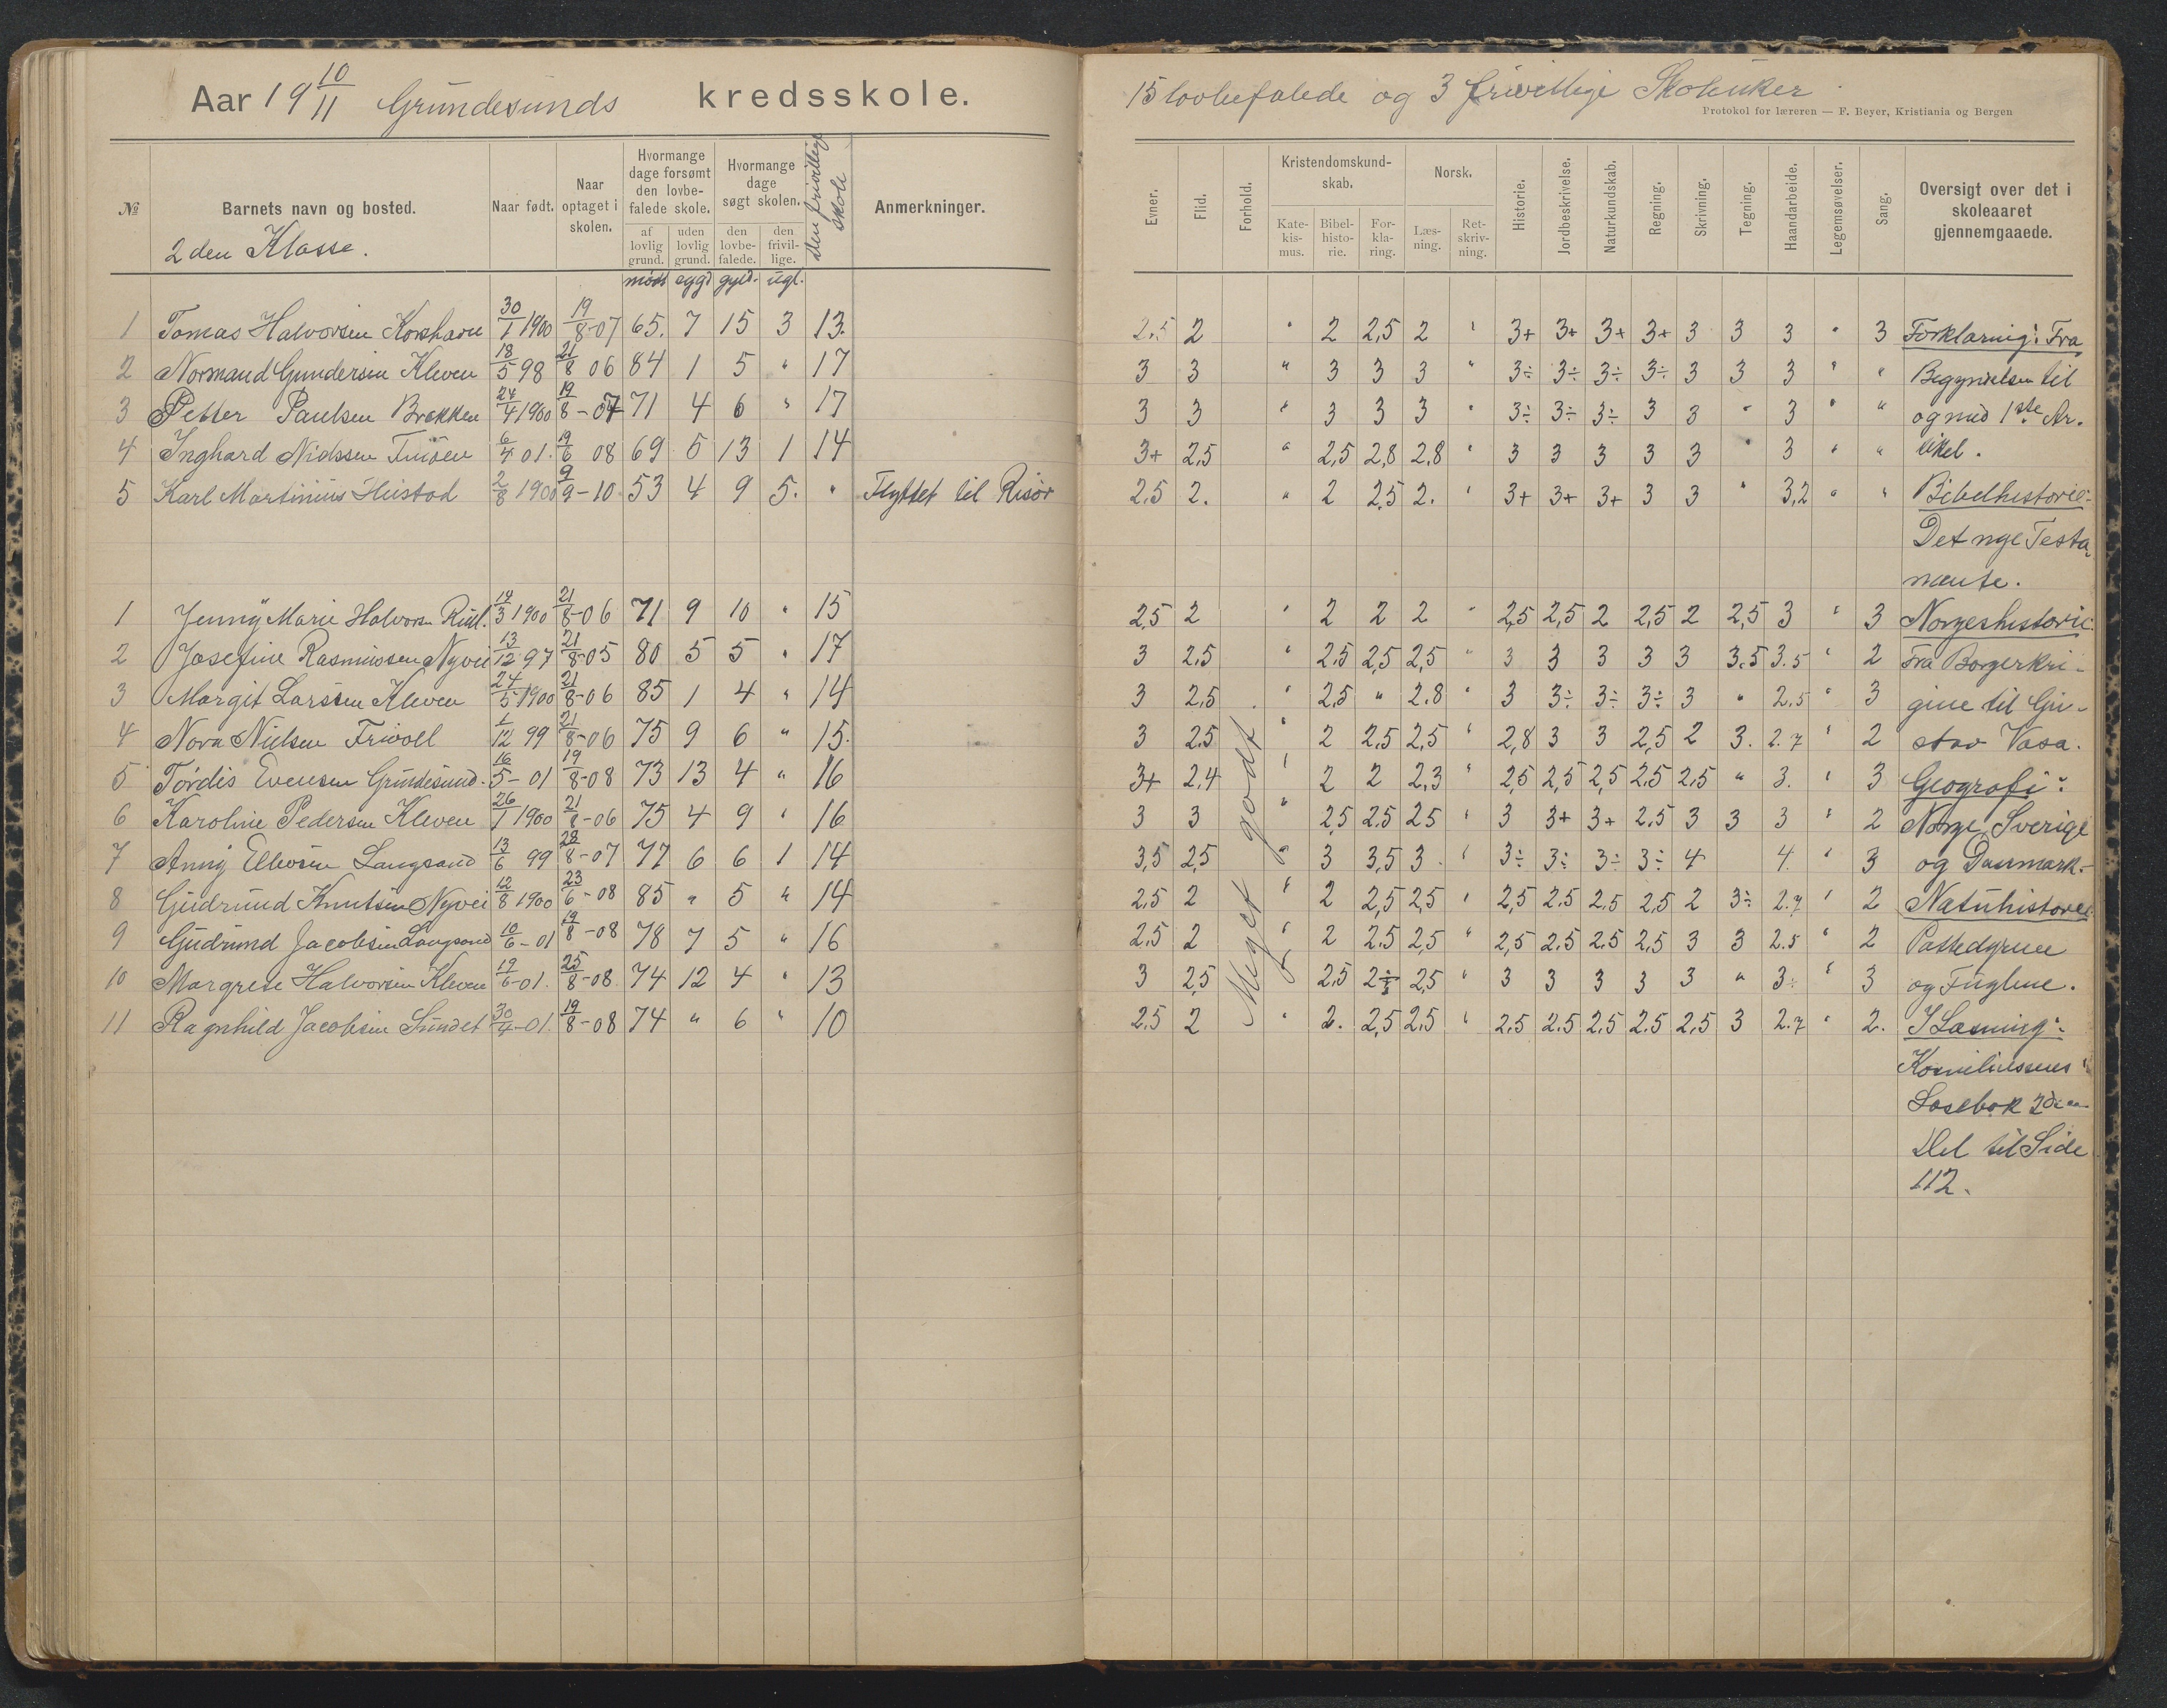 Aar 19 10/11 Grundesunds kredsskole.
№
Barnets navn og bosted.
2 den Klasse.
Naar født.
Naar optaget i skolen.
Hvormange dage forsømt den lovbefalede skole.
af lovlig grund.
uden lovlig grund.
Hvormange dage søgt skolen.
den lovbefalede.
den frivillige.
Den frivillige skole
Anmerkninger.
mødt sygd gyld. ugl.
1 Tomas Halvorsen Korshavn 30/1 1900 19/8-07 65. 7 15 3 13.
2 Normand Gundersen Kleven 18/5 98 21/8 06 84 1 5 " 17
3 Petter Paulsen Brekken 24/4 1900 19/8-07 71 4 6 " 17
4 Inghard 6/4 01. 19/6 08 69 5 13 1 14
5 Karl Martinius 2/8 1900 9/9-10 53 4 9 5. " Flyttet til Risør
1 Jenny Marie Halvors. 3 1900 21/8-06 71 9 10 " 15
2 Josefine Rasmussen Nyvei 13/12 97 21/8-05 80 5 5 " 17
3 Margit Larssen Kleven 24/5 1900 21/8-06 85 1 4 " 14
4 Nora Nielsen Frivoll 1/12 99 21/8-06 75 9 6 " 15.
5 Tordis Evensen Grundesund. 16/5-01 19/8-08 73 13 4 " 16
6 Karoline Pedersen Kleven 26/1 1900 21/8-06 75 4 9 " 16
7 Anny Ellevsen Langsand 13/6 99 28/8-07 77 6 6 1 14
8 Gudrund Knutsen Nyvei 12/8 1900 23/6-08 85 " 5 " 14
9 Gudrund Jacobsen Langsand 10/6-01 19/8-08 78 7 5 " 16
10 Margrete Halvorsen Kleven 19/6-01. 25/8-08. 74 12 4 " 13
11 Ragnhild Jacobsen Sundet 30/4-01. 19/8-08 74 " 6 " 10
15 lovbefalede og 3 frivillige Skoleuker
Protokol for læreren — F. Beyer, Kristiania og Bergen
Evner.
Flid.
Forhold.
Kristendomskundskab.
Katekismus.
Bibelhistorie.
Forklaring.
Norsk.
Læsning.
Retskrivning.
Historie.
Jordbeskrivelse.
Naturkundskab.
Regning.
Skrivning.
Tegning.
Haandarbeide.
Legemsøvelser.
Sang.
Oversigt over det i skoleaaret gjennemgaaede.
2,5 2 " 2 2,5 2 " 3+ 3+ 3+ 3+ 3 3 3 " 3 Forklaring: Fra
3 3 " 3 3 3 " 3÷ 3÷ 3÷ 3÷ 3 3 3 " " Begynnelsen til
3 3 " 3 3 3 " 3÷ 3÷ 3÷ 3 3 " 3 " " og med 1ste Ar-
3+ 2,5 " 2,5 2,8 2,8 " 3 3 3 3 3 " 3 " " tikel.
2,5 2. " 2 2,5 2. " 3+ 3+ 3+ 3 3 " 3,2 " " Bibelhistorie:
Det nye Testa-
mente.
2,5 2 " 2 2 2 " 2,5 2,5 2 2,5 2 2,5 3 " 3 Norgeshistorie:
3 2,5 " 2,5 2,5 2,5 " 3 3 3 3 3 3.5 3.5 " 2 Fra Borgerkri-
3 2,5 " 2,5 " 2.8 " 3 3÷ 3÷ 3÷ 3 " 2.5 " 3 gene til Gu-
3 2,5 " 2 2,5 2,5 " 2,8 3 3 2,5 2 3. 2.7 " 2 stav Vasa.
3+ 2,4 " 2 2 2,3 " 2,5 2,5 2,5 2.5 2.5 " 3. " 3 Geografi:
3 3 " 2,5 2.5 2.5 " 3 3+ 3+ 2.5 3 3 3 " 2 Norge, Sverige
3,5 2,5 " 3 3,5 3. " 3÷ 3÷ 3÷ 3÷ 4 4. " 3 og Danmark.-
2,5 2 " 2 2,5 2,5 " 2,5 2.5 2.5 2,5 2 3÷ 2.7 " 2 Natuhistorie:
2,5 2 " 2 2.5 2,5 " 2,5 2.5 2.5 2,5 3 3 2.5 " 2 Pattedyrene
3 2,5 " 2,5 2÷ 2,5 " 3 3 3 3 3 " 3÷ " 3 og Fuglene.
2.5 2 " 2. 2,5 2.5 " 2.5 2.5 2.5 2.5 2,5 3 2.7 " 2. I Læsning:
Meget godt
Kornelinssens
Læsebok 2den
Del til Side
112.